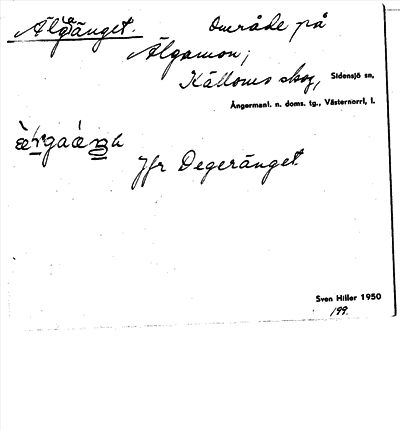 Älgaänget. Område på
Älgamon;
Källoms skog, Sidensjö sn,
Ångermanl. n. doms. tg., Västernorrl. l.
Jfr Degeränget.
Sven Hiller 1950
199.